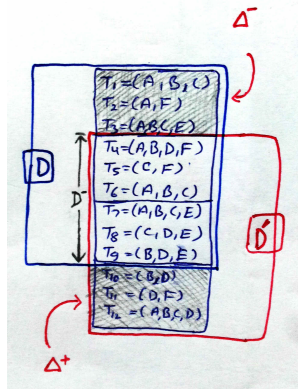 Δ⁻
T₁=(A,B,C)
T₂=(A,F)
T₃=(A,B,C,E)
D
T₄=(A,B,D,F)
T₅=(C,F)
T₆=(A,B,C)
D⁻
T₇=(A,B,C,E)
T₈=(C,D,E)
T₉=(B,D,E)
D′
T₁₀=(B,D)
T₁₁=(D,F)
T₁₂=(A,B,C,D)
Δ⁺